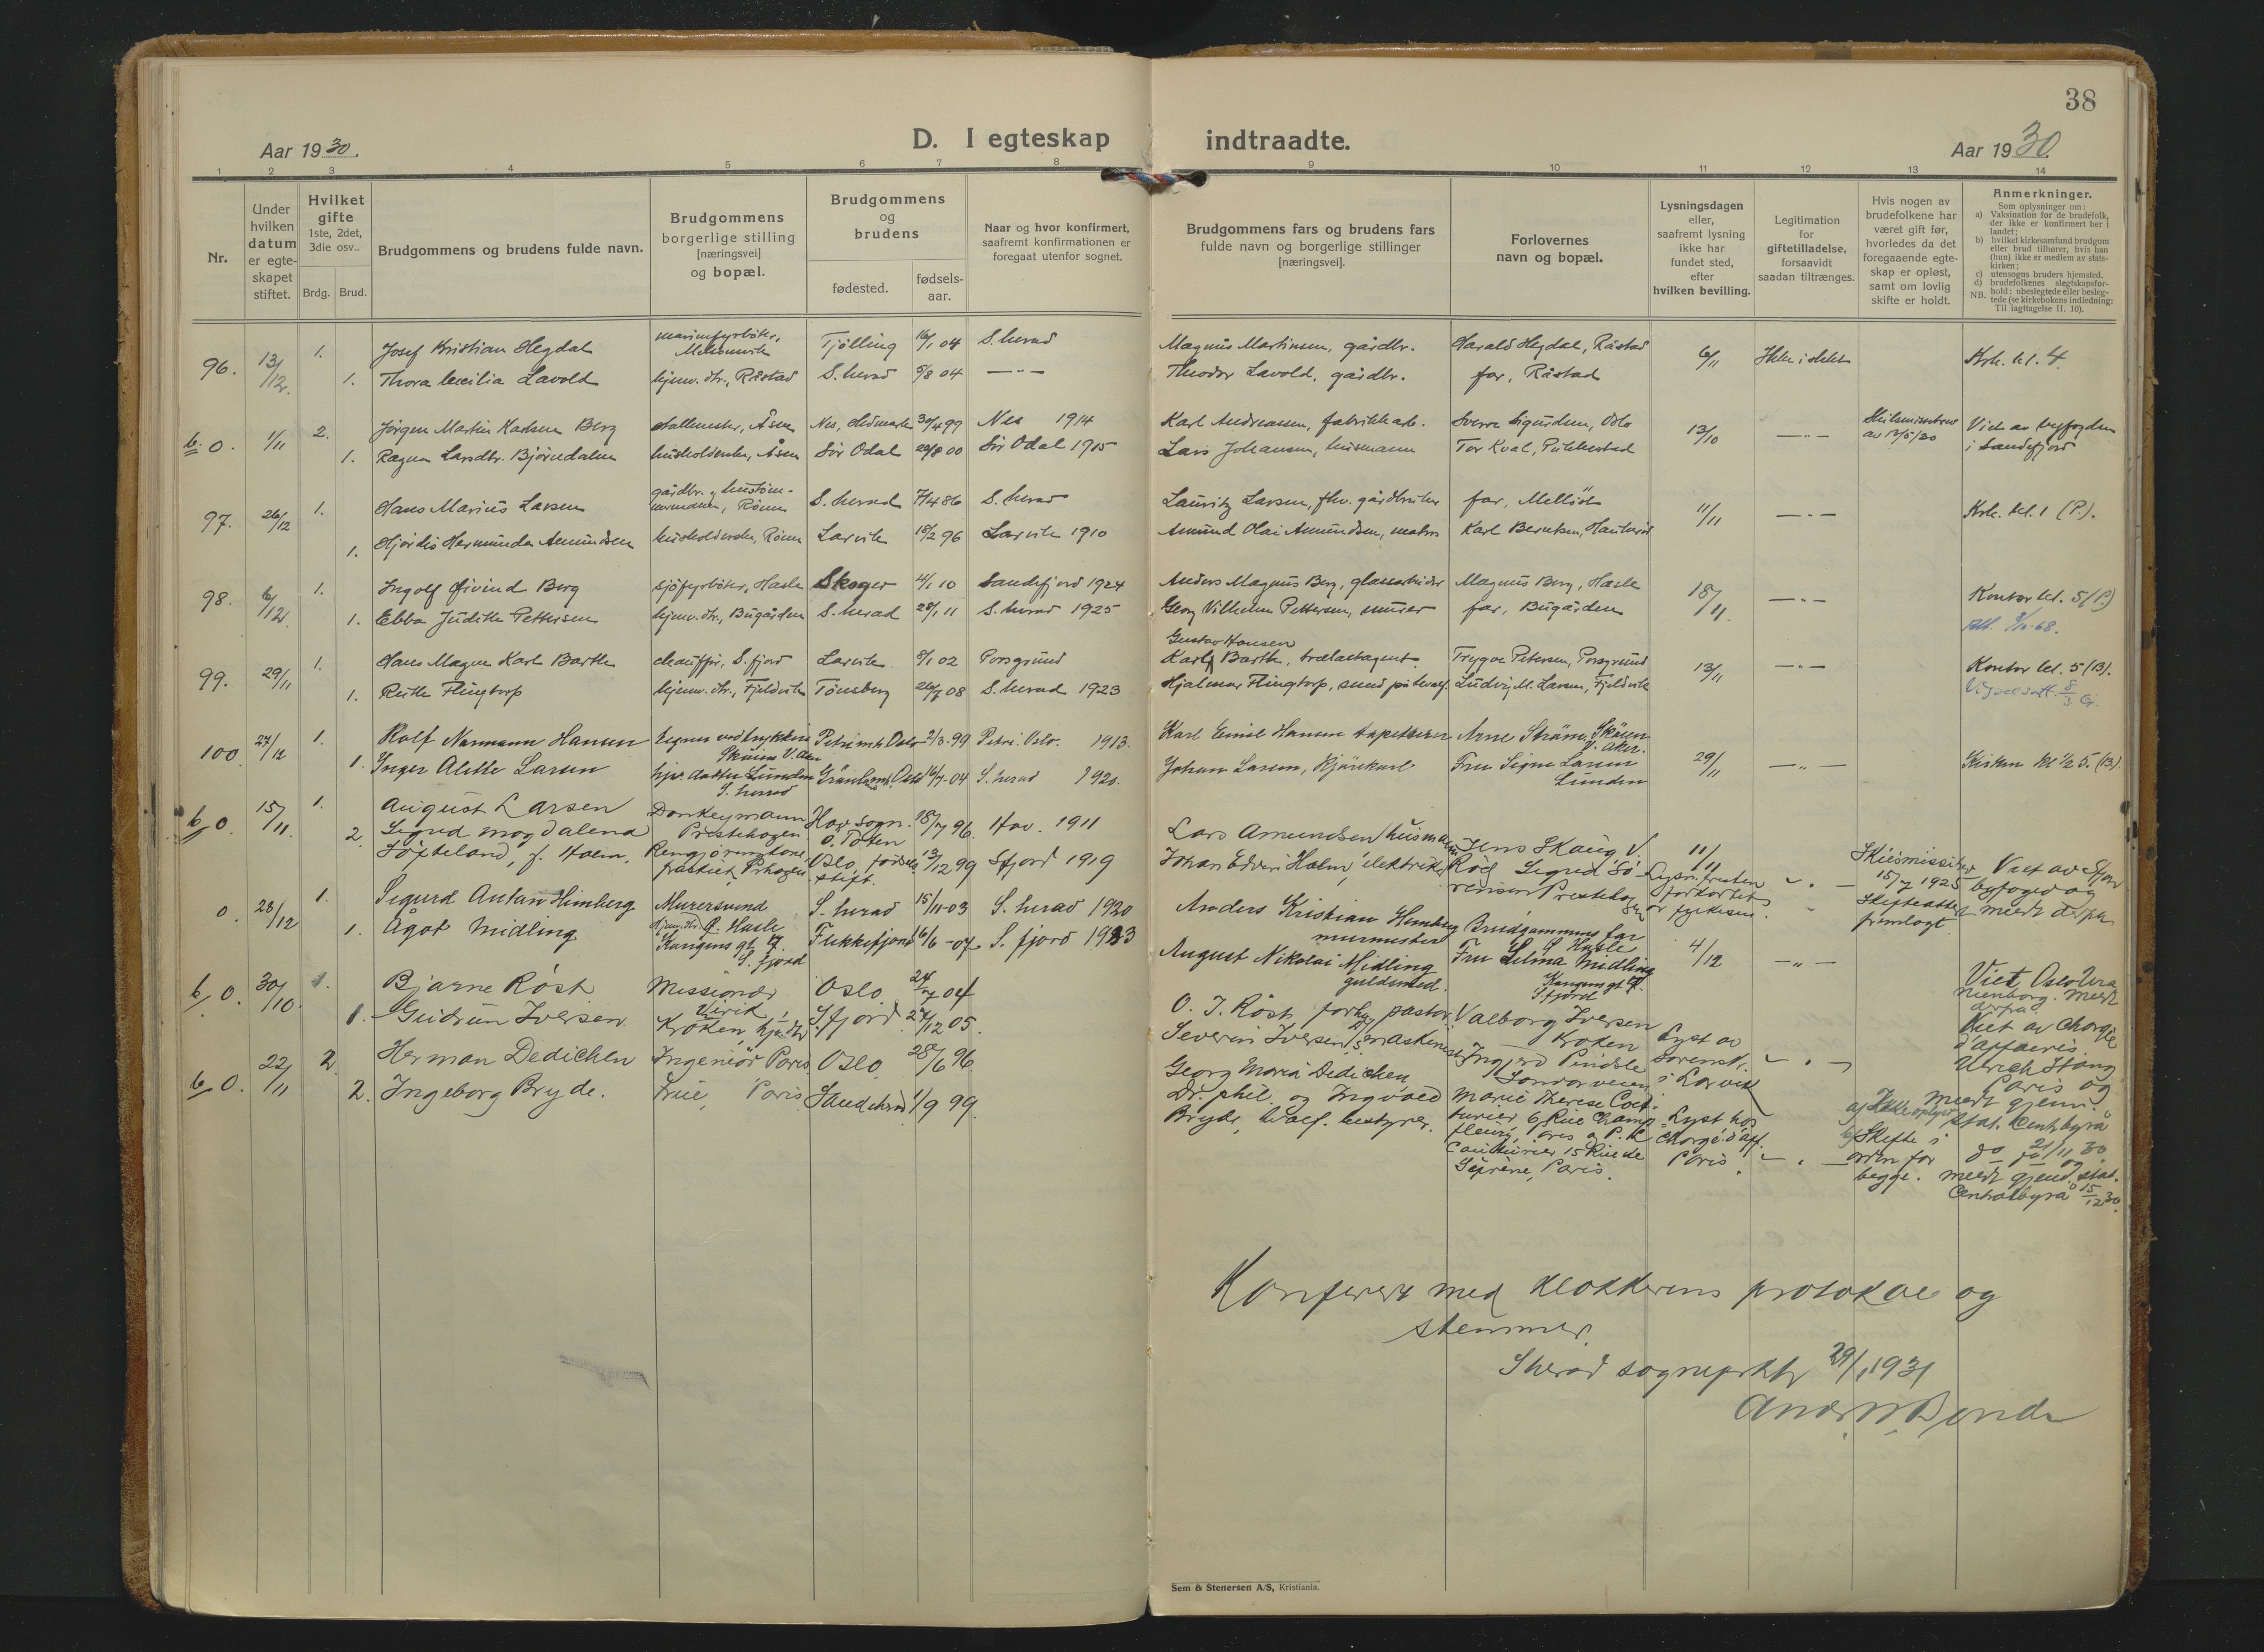 38
Aar 1930.
D. I egteskap indtraadte.
Aar 1930.
1 2 3 4 5 6 7 8 9 10 11 12 13 14
Nr.
Under hvilken datum er egteskapet stiftet.
Hvilket gifte 1ste, 2det, 3die osv..
Brdg. Brud.
Brudgommens og brudens fulde navn.
Brudgommens borgerlige stilling [næringsvei] og bopæl.
Brudgommens og brudens
fødested.
fødsels-aar.
Naar og hvor konfirmert, saafremt konfirmationen er foregaat utenfor sognet.
Brudgommens fars og brudens fars fulde navn og borgerlige stillinger [næringsvei].
Forlovernes navn og bopæl.
Lysningsdagen eller, saafremt lysning ikke har fundet sted, efter hvilken bevilling.
Legitimation for giftetilladelse, forsaavidt saadan tiltrænges.
Hvis nogen av brudefolkene har været gift før, hvorledes da det foregaaende egteskap er opløst, samt om lovlig skifte er holdt.
Anmerkninger.
Som oplysninger om:
a) Vaksination for de brudefolk, der ikke er konfirmert her i landet;
b) hvilket kirkesamfund brudgom eller brud tilhører, hvis han (hun) ikke er medlem av statskirken;
c) utensogns bruders hjemsted.
d) brudefolkenes slegtskapsforhold: ubeslegtede eller beslegtede (se kirkebokens indledning:
NB. Til iagttagelse II. 10).
96. 13/12. 1. Josef Kristian Hegdal Tjølling 16/1 04 S. herad Magnus Martinsen, gårdbr. Harald Hegdal, Råstad 6/11 Ikke i slekt Krk. kl. 4.
1. Thora Cecilia Lavold hjemv. dtr., Råstad S. herad 5/8 04 — " — Theodor Lavold, gårdbr. far, Råstad
b. 0. 1/11 2. Jørgen Martin Karlsen Berg stallmester, Åsen Nes, Hedmark 30/4 99 Nes 1914 Karl Andreassen, fabrikkarb. Sverre Sigurdsen, Oslo 13/10 — " — Skilsmissebrev av Viet av byfogden
1. Ragna Larsdtr. Bjørndalen husholderske, Åsen Sør Odal 22/8 00 Sør Odal 1915 Lars Johansen, husmann Tor Kval, Pukkestad i Sandefjord
97. 26/12 1. Hans Marius Larsen gårdbr. og S. herad 7/4 86 S. herad Lauritz Larsen, fhv. gårdbruker far, Melløst 11/11 — " — Krk. kl. 1 (P.).
1. Hjørdis Hermunda Amundsen husholderske, Rønn Larvik 18/2 96 Larvik 1910 Amund Olai Amundsen, Karl Berntsen,
98. 6/12. 1. Ingolf Øivind Berg sjøfyrbøter, Hasle Skoger 4/1 10 Sandefjord 1924 Anders Magnus Berg, glassarbeider Magnus Berg, Hasle 18/11 — " — Kontor kl. 5 (P.)
1. Ebba Judith Pettersen hjemv. dtr., Bugården S. herad 28/1 11 S. herad 1925 Georg Vilhelm Pettersen, murer far, Bugården
99. 29/11 1. Hans Magne Karl Barth chauffør, S. fjord Larvik 8/1 02 Porsgrund Gustav Hansen Karl Barth, trælastagent. Trygve Petersen, Porsgrund 13/11 — " — Kontor kl. 5 (B).
1. Ruth Flingtorp hjemv. dtr., Fjeldvik Tønsberg 08 S. herad 1923 Hjalmar Flingtorp, smed på hvalf. Ludvig M. Larsen, Fjeldvik
100. 27/12 1. Rolf Normann Hansen Oslo 2/3.99 Petri. Oslo. 1913. Karl Emil Hansen tapetserer Arne Strøm, Skøien V. Aker. 29/11 — " — Kirken kl ½ 5. (B).
1. Inger Alette Larsen hjv. datter Lunden S. herad Oslo 16/7.04 S. herad 1920. Johan Larsen, Kjørekarl Fru Signe Larsen Lunden
b. 0. 15/11. 1. August Larsen Donkeymann Prestehagen Hov sogn. Ø. Toten 18/7 96. Hov. 1911 Lars Amundsen husmann Jens Skaug V. Røed 11/11 Lysn. fristen forkortet av fylkesm. Skilsmissebev 15/7 1925 Skifteattest fremlagt Viet av Sfjord byfoged og meldt derfra
2. Sigrid Magdalena Løfteland, f. Holm. Oslo, fødsels stift. 13/12 99 Sfjord 1919 Johan Edvin Holm, elektriker Sigrid Sørensen Prestehagen
0. 28/12 1. Sigurd Anton Himberg Murersvend Hasle S. herad 15/11-03 S. herad 1920 Anders Kristian Himberg murmester Brudgommens far S Hasle 4/12 — " —
1. Ågot Midling Kongens gt. S. fjord Flekkefjord 16/6-07 S. fjord 1923 August Nikolai Midling guldsmed. Fru Selma Midling Kongens gt. Sfjord
b. 0. 30/10. 1. Bjarne Røst Missionær Virik, Oslo 24/7 04 O. J. Røst, pastor Valborg Iversen Kroken Lyst av Sorenskr. i Larvik Viet, Oslo Uranienborg. Meldt derfra.
1. Gudrun Iversen Kroken, hjv. dtr Sfjord 05. Severin Iversen, maskinist Ingjerd Pindsle
b. 0. 22/11 2. Herman Dedichen Ingeniør Paris Oslo 28/6 96. Georg Maria Dedichen, Dr. phil. og Ingvald Marie Therese 6 Rue Lyst hos Chargé d'aff. Paris. a) Ikke oplyst b) Skifte i orden for begge. Viet av Chargé d'affaeris Ulrich Stang Paris og meldt gjenn. stat. Centrbyrå do 21/11 30. og meldt gjenn. stat. Centralbyrå 15/12 30.
2. Ingeborg Bryde. Frue, Paris Sandeherad 1/9 99. Bryde, hvalf. bestyrer. 15 Rue de Paris.
Konferert med klokkerens protokol og
stemmer.
Sherad sogneprkt 29/1 1931
Sem & Stenersen A/S, Kristiania.